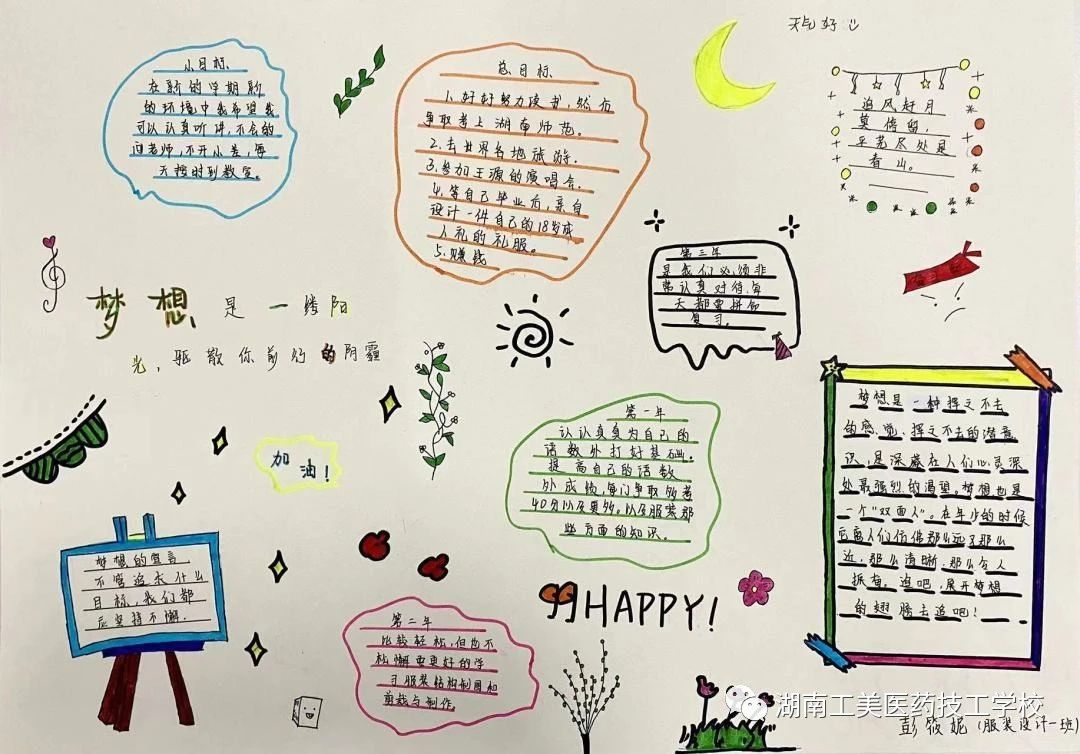 天气好
小目标
在新的学期新
的环境中我希望我
可以认真听讲,不会的
问老师,不开小差,每
天按时到教室。
总目标
1.好好努力读书,然后
争取考上湖南师范。
2.去世界各地旅游.
3.参加王源的演唱会.
4.等自己毕业后,亲自
设计一件自己的18岁成
人礼的礼服。
5.赚钱
追风好月
莫停留,
平芜尽处是
春山。
第三年
是我们必须非
常认真对待,每
天都要拼命
复习。
梦想是一缕阳
光,驱散你前行的阴霾
加油!
第一年
认认真真为自己的
语数外打好基础。
提高自己的语数
外成绩,每门争取能考
40分以及更多。以及服装那
些方面的知识。
梦想是一种挥之不去
的感觉、挥之不去的潜意
识,是深藏在人们心灵深
处最强烈的渴望。梦想也是
一个"双面人"。在年少的时候
后离人们仿佛那么远又那么
近,那么清晰,那么令人
振奋。追吧,展开梦想
的翅膀去追吧!
梦想的宣言
不管追求什么
目标,我们都
应坚持不懈.
HAPPY!
第二年
比较轻松,但也不
松懈要更好的学
习服装结构制图和
剪裁与制作。
湖南工美医药技工学校
彭筱妮(服装设计一班)